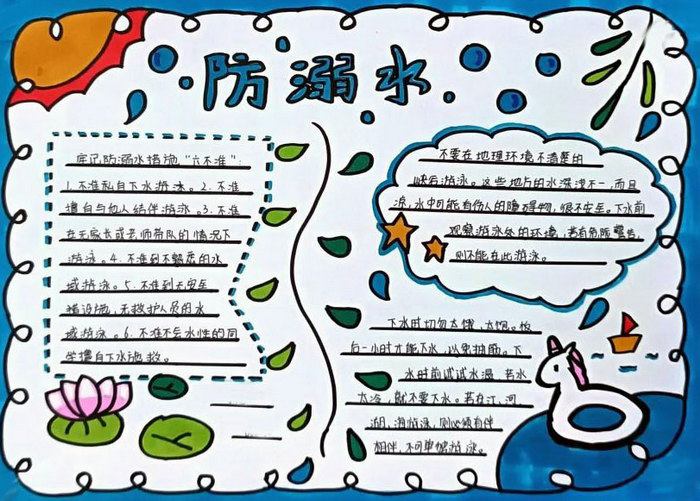 防溺水
牢记防溺水措施“六不准”:
1.不准私自下水游泳。2.不准
擅自与他人结伴游泳。3.不准
在无家长或老师带队的情况下
游泳。4.不准到不熟悉的水
域游泳。5.不准到无安全
措设施,无救护人员的水
域游泳。6.不准不会水性的同
学擅自下水施救。
不要在地理环境不清楚的
峡谷游泳。这些地方的水深浅不一,而且
凉,水中可能有伤人的障碍物,很不安全。下水前
观察游泳处的环境,若有危险警告,
则不能在此游泳。
下水时切勿太饿、太饱。饭
后一小时才能下水,以免抽筋。下
水时前试试水温,若水
太冷,就不要下水。若在江、河
湖、海游泳,则必须有伴
相伴,不可单独游泳。